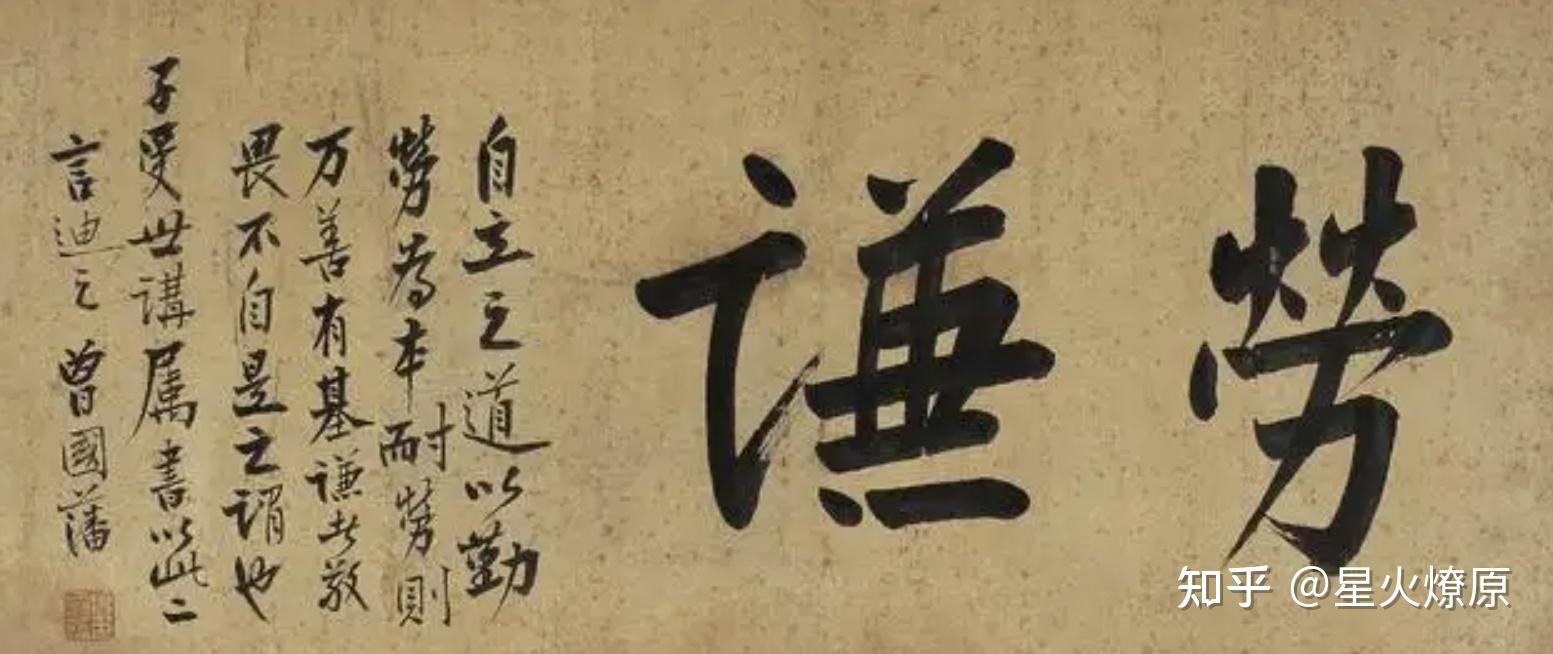 勞謙
自立之道以勤
勞為本耐勞則
万善有基謙者敬
畏不自是之謂也
子受世講属書以此二
言迪之曾國藩
知乎 @星火燎原